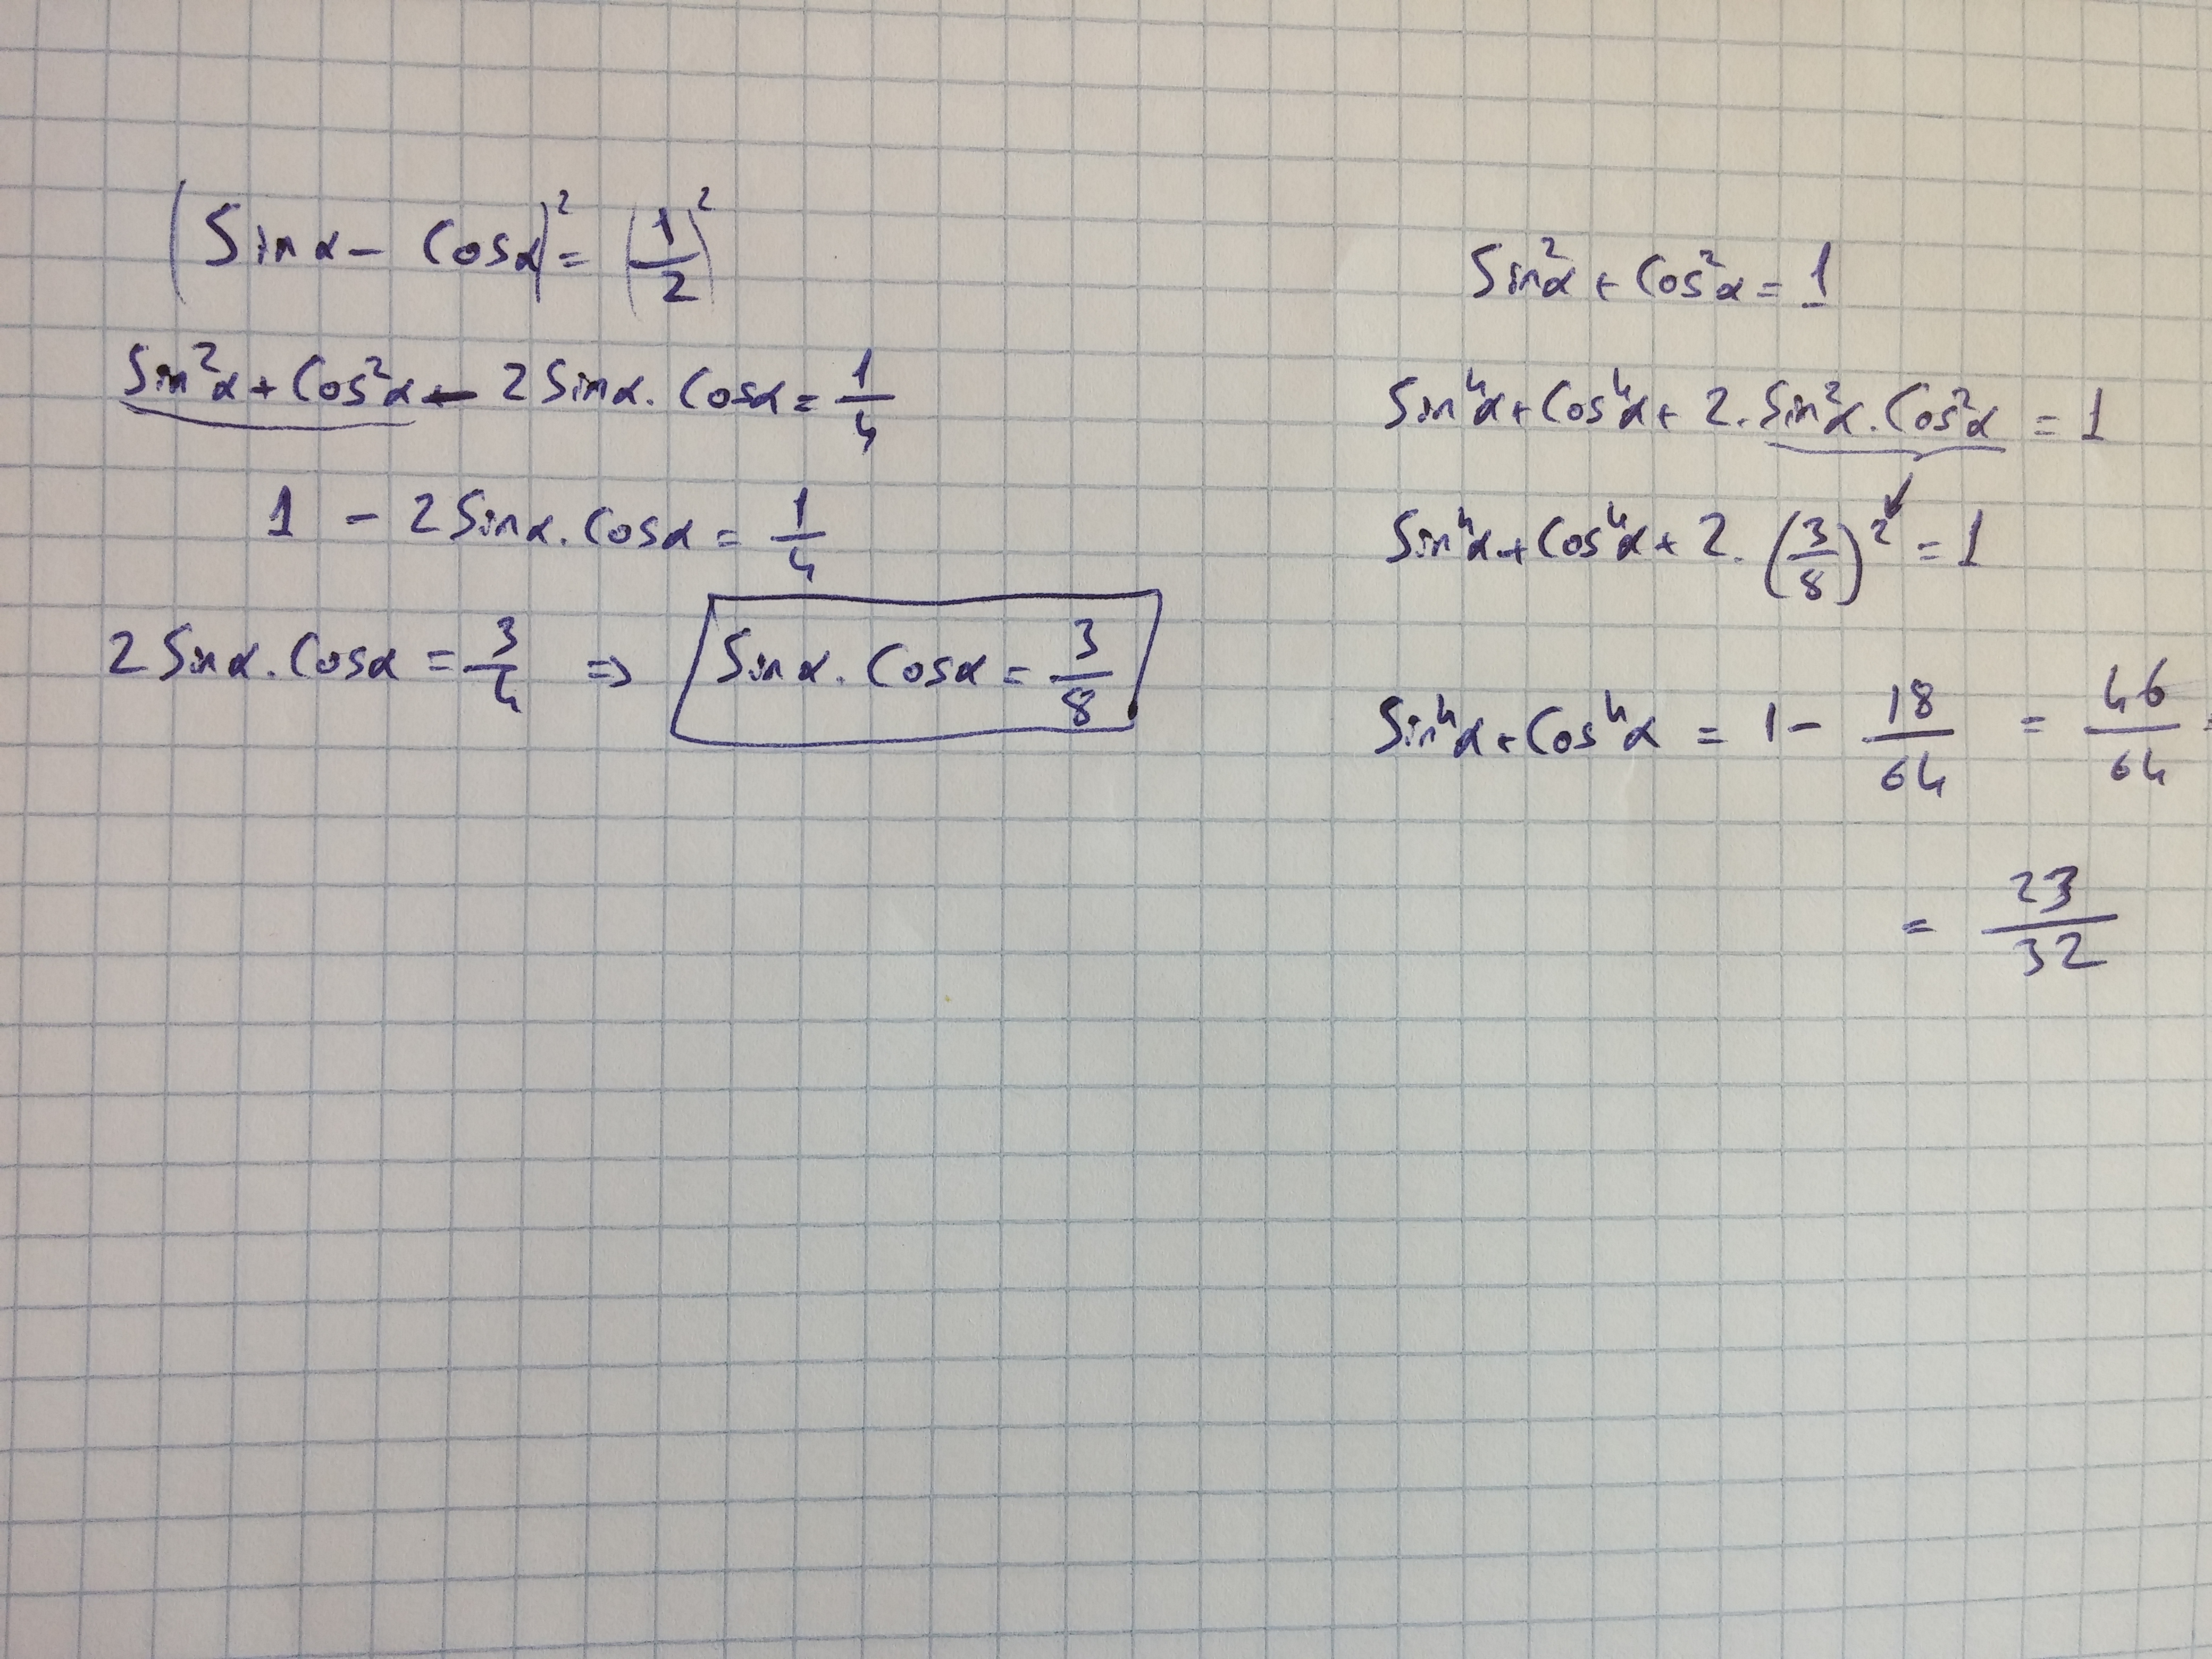 (Sinα - Cosα)² = (1/2)²
Sin²α + Cos²α - 2 Sinα . Cosα = 1/4
1 - 2 Sinα . Cosα = 1/4
2 Sinα . Cosα = 3/4 ⇒ Sinα . Cosα = 3/8
Sin²α + Cos²α = 1
Sin⁴α + Cos⁴α + 2 . Sin²α . Cos²α = 1
Sin⁴α + Cos⁴α + 2 . (3/8)² = 1
Sin⁴α + Cos⁴α = 1 - 18/64 = 46/64 =
= 23/32